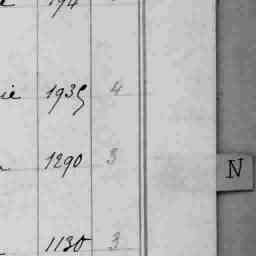 194
ie 1935 4
1290 3
N
1130 3